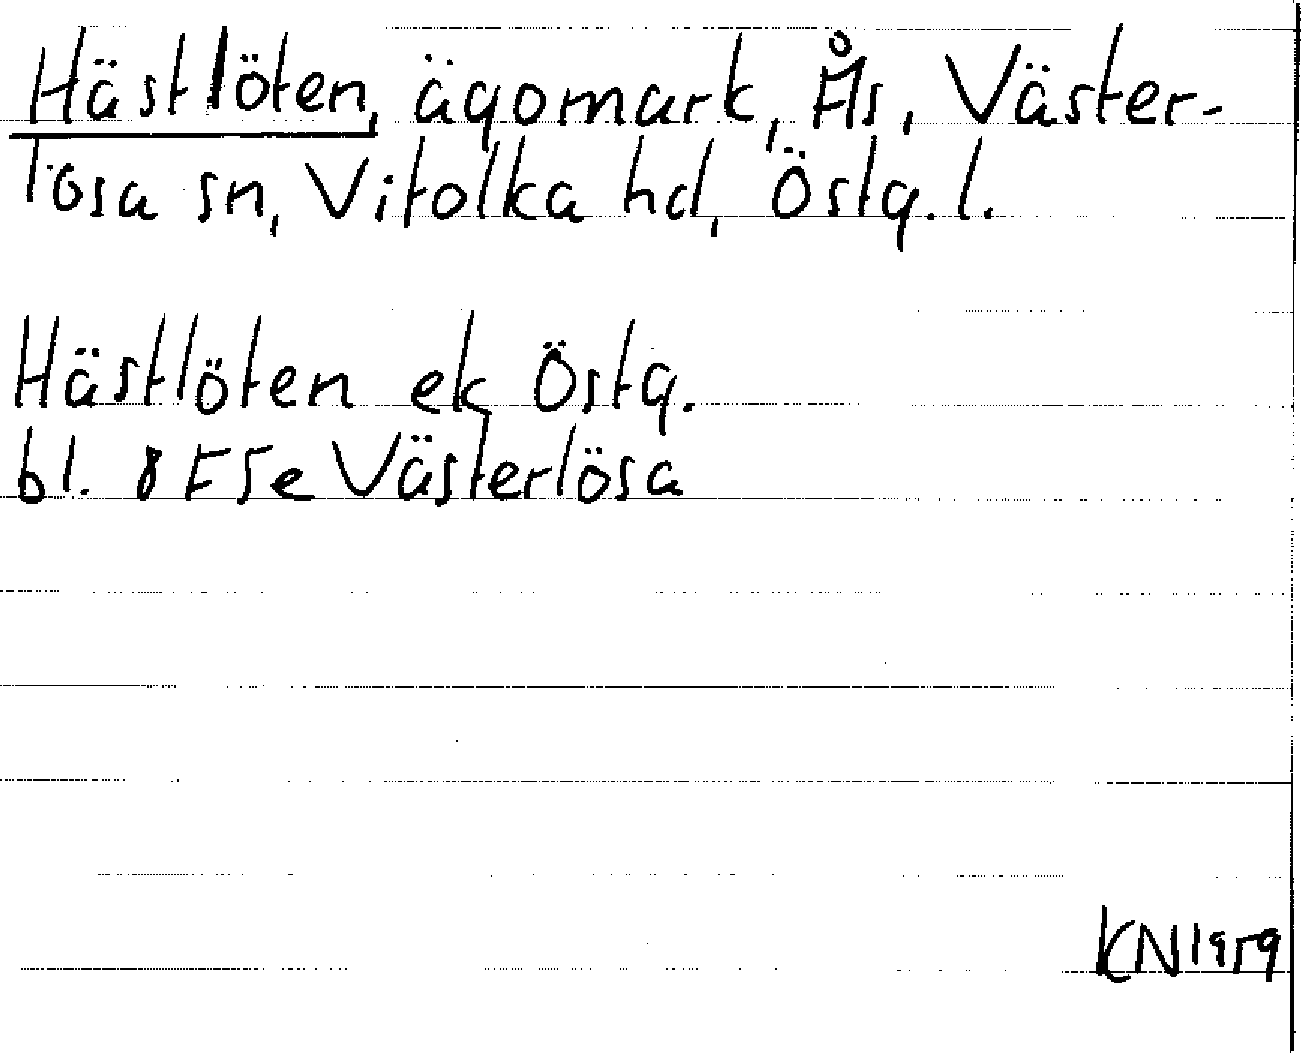 Hästlöten, ägomark, Ås, Väster-
lösa sn, Vifolka hd, Östg. l.
Hästlöten ek Östg.
bl. 8 F 5e Västerlösa
KN 1959